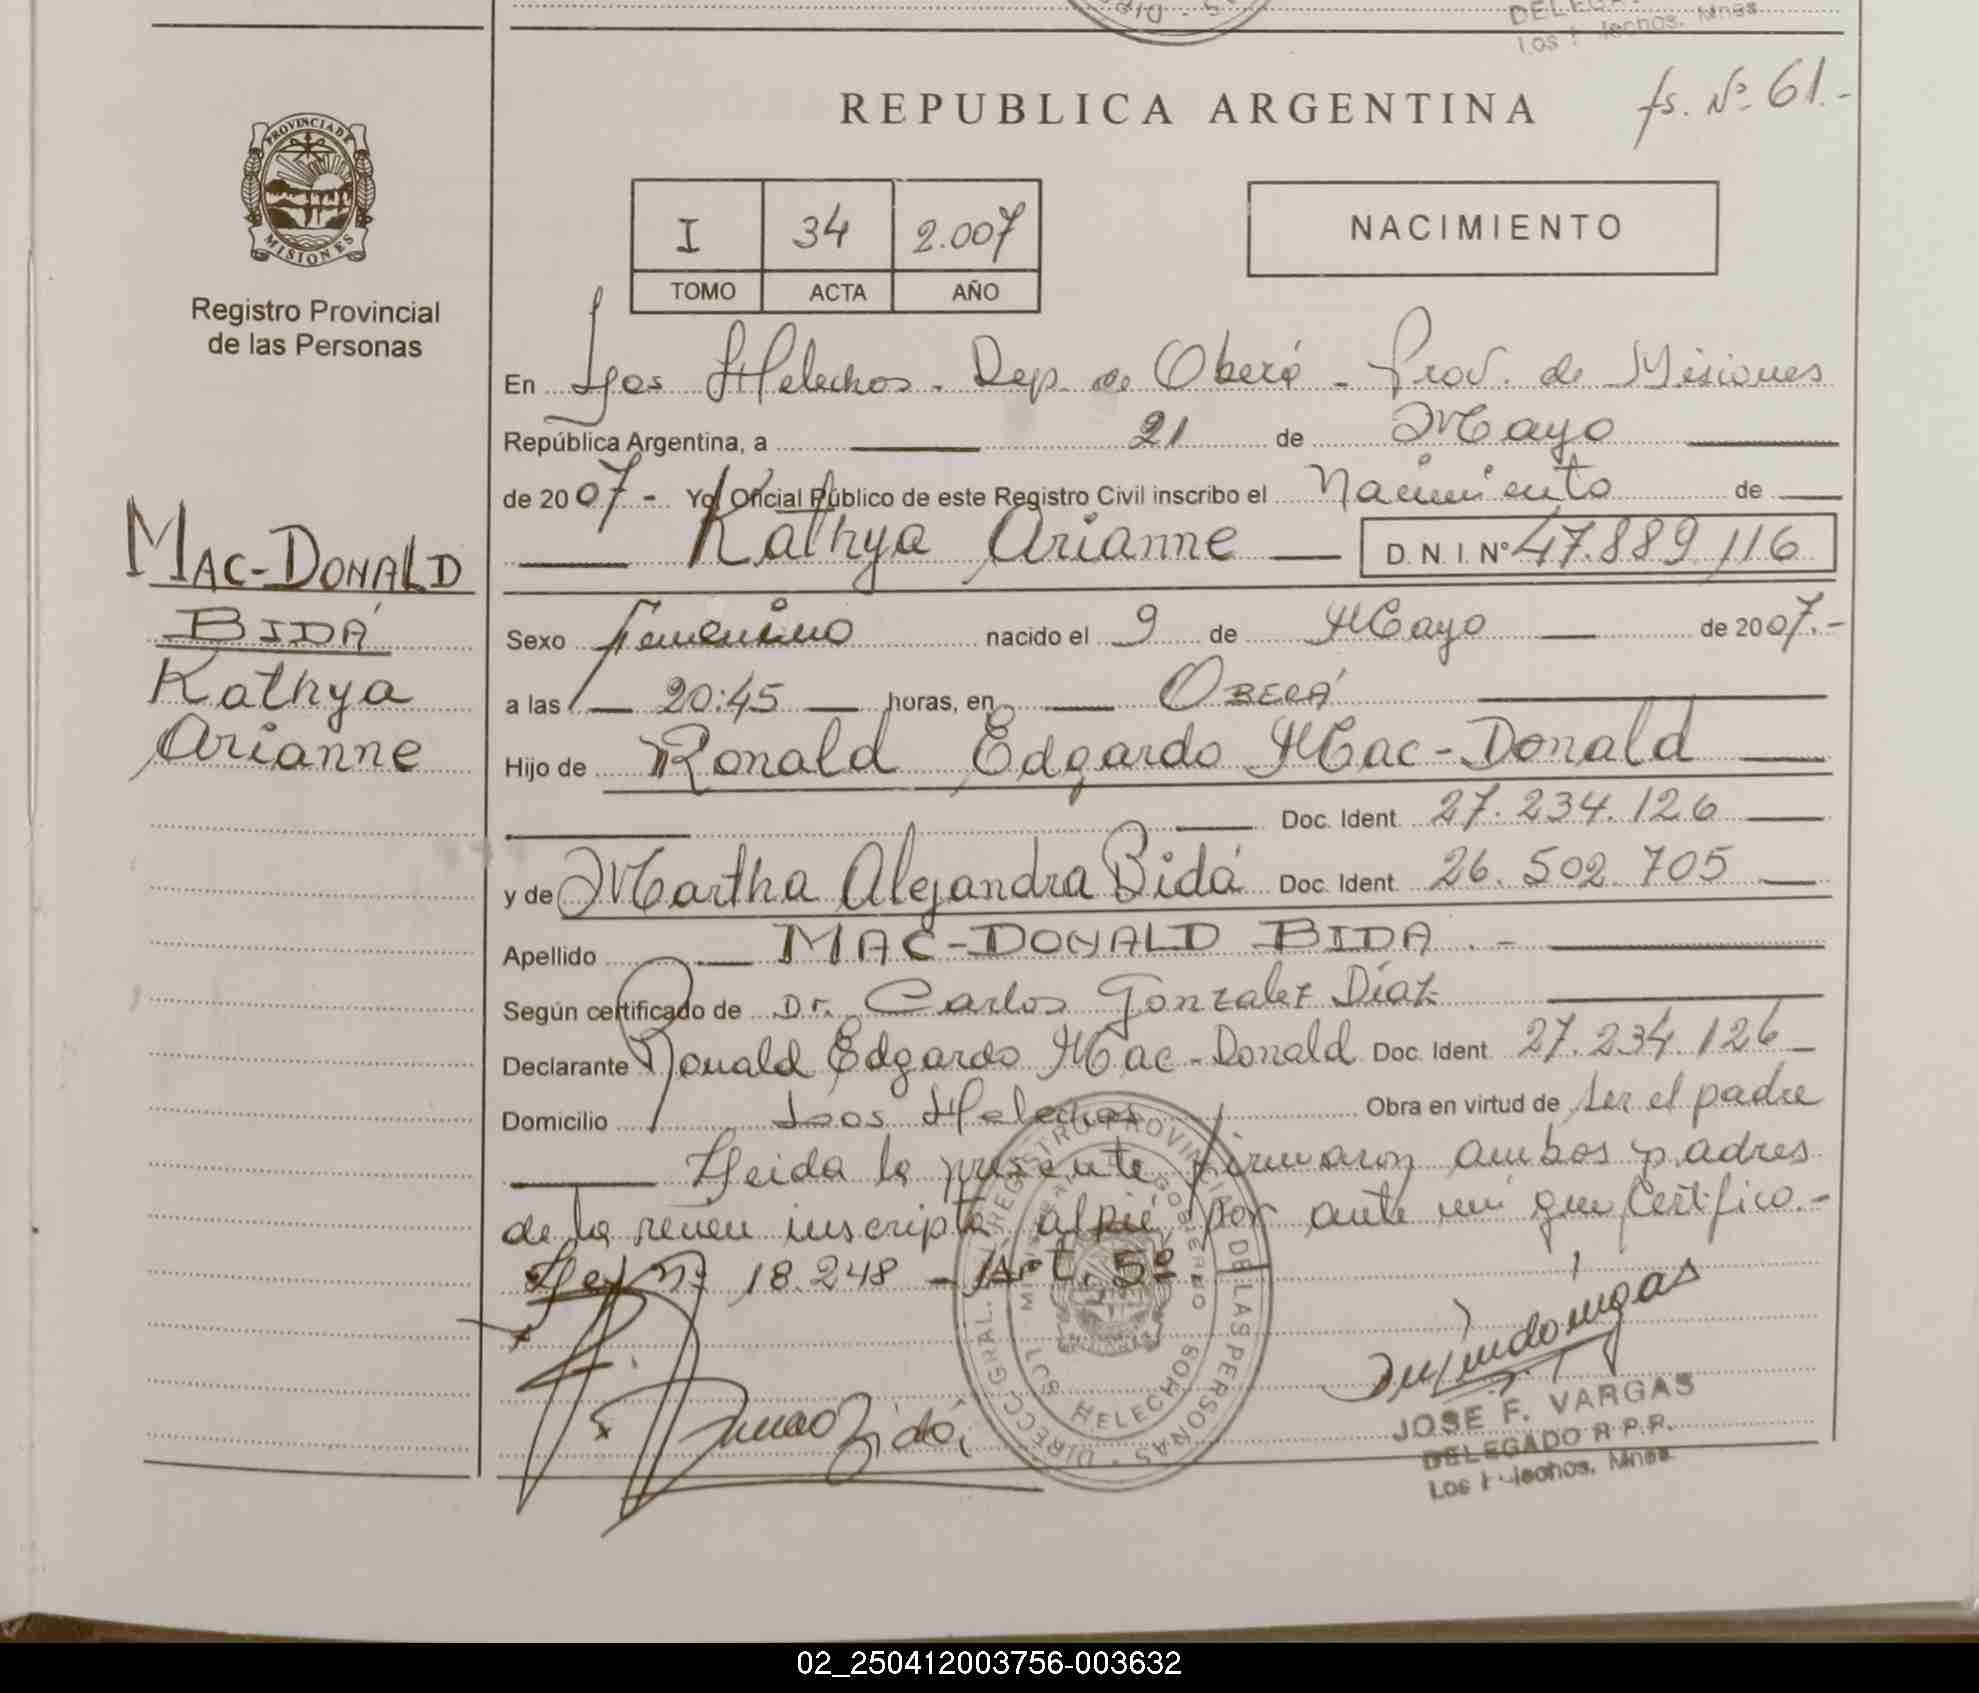 DELEGA
Los H lechos. Mnes
REPUBLICA ARGENTINA
fs. Nº 61.-
PROVINCIA DE
MISIONES
Registro Provincial
de las Personas
I 34 2.007
TOMO ACTA AÑO
NACIMIENTO
En Los Helechos - Dep. de Oberá - Prov. de Misiones
República Argentina, a 21 de Mayo
de 2007 - Yo, Oficial Público de este Registro Civil inscribo el Nacimiento de
Kathya Arianne D. N. I. Nº 47.889.116
MAC-DONALD
BIDÁ
Kathya
Arianne
Sexo femenino nacido el 9 de Mayo de 2007.-
a las 20:45 horas, en OBERÁ
Hijo de Ronald Edgardo Mac-Donald
Doc. Ident. 27.234.126
y de Martha Alejandra Bidá Doc. Ident. 26.502.705
Apellido MAC-DONALD BIDA. -
Según certificado de Dr. Carlos Gonzalez Díaz
Declarante Ronald Edgardo Mac-Donald Doc. Ident. 27.234.126
Domicilio Los Helechos Obra en virtud de ser el padre
Leida la presente firmaron ambos padres
de la recien inscripta, al pié, por ante mí que Certifico.-
Ley nº 18.248 - Art. 5º
Bidá
DIRECC. GRAL. REGISTRO PROVINCIAL DE LAS PERSONAS
GOBIERNO
HELECHOS
JOSE F. VARGAS
DELEGADO R.P.P.
Los H lechos, Mnes
02_250412003756-003632